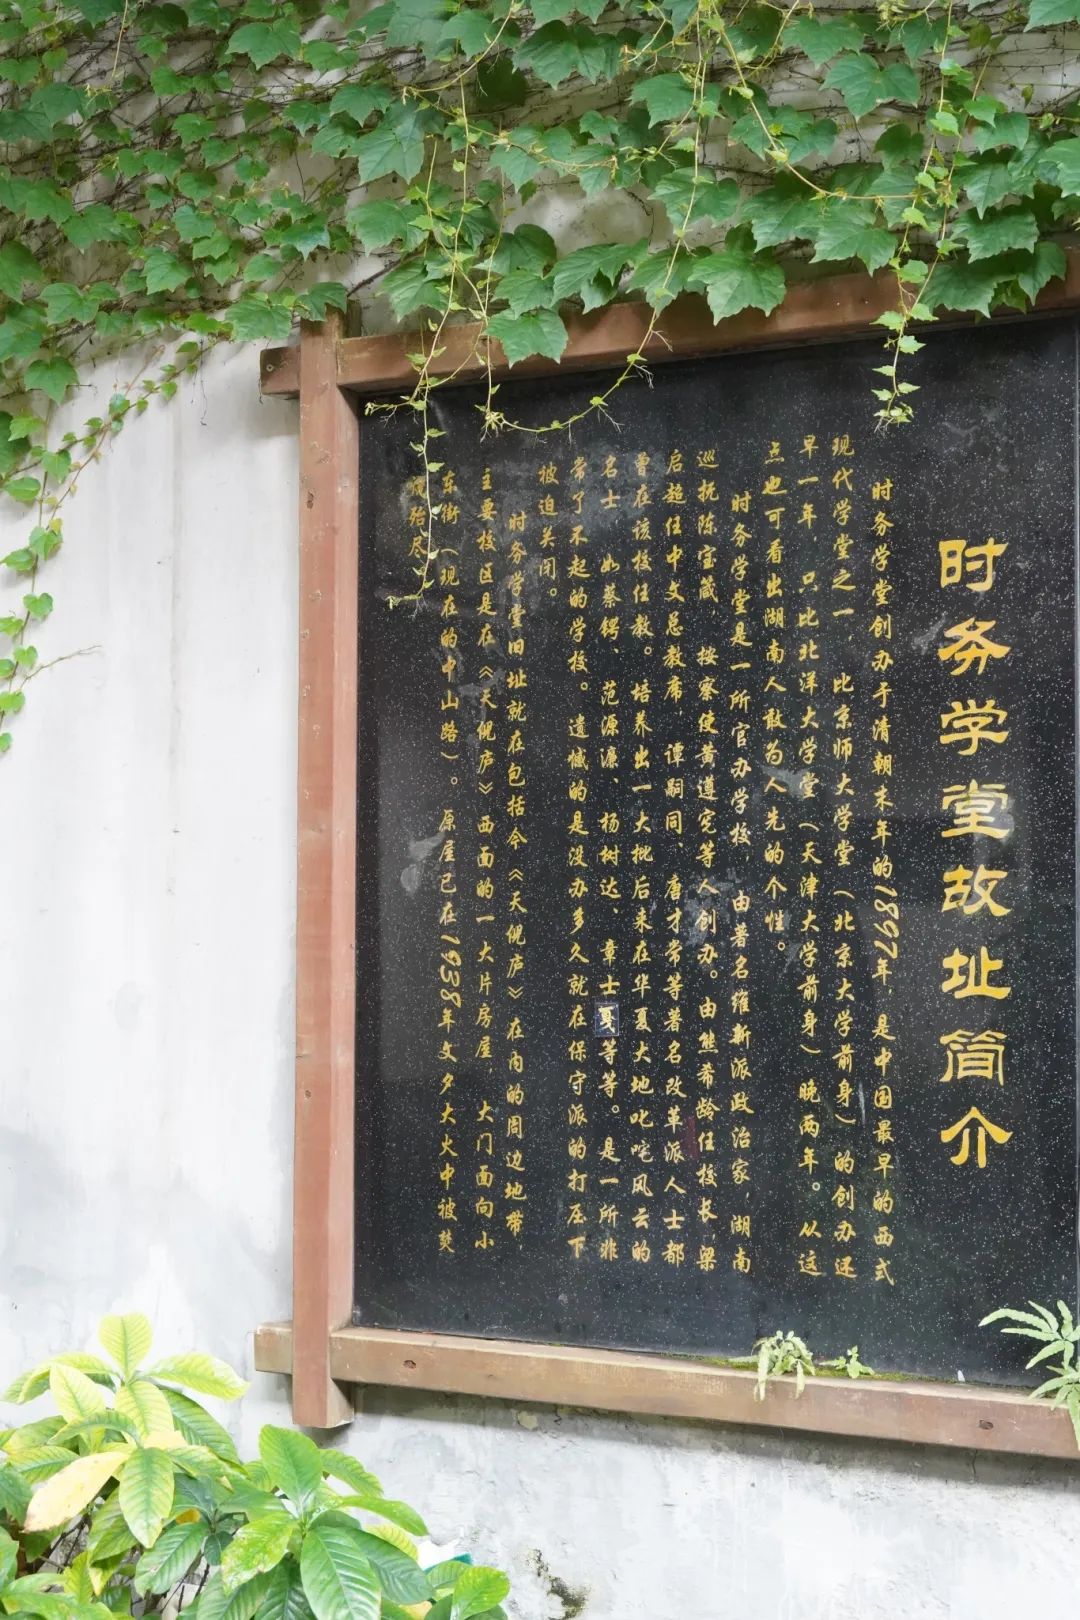 时务学堂故址简介
时务学堂创办于清朝末年的1897年，是中国最早的西式
现代学堂之一，比京师大学堂（北京大学前身）的创办还
早一年，只比北洋大学堂（天津大学前身）晚两年。从这
点也可看出湖南人敢为人先的个性。
时务学堂是一所官办学校，由著名维新派政治家，湖南
巡抚陈宝箴、按察使黄遵宪等人创办。由熊希龄任校长，梁
启超任中文总教席，谭嗣同、唐才常等著名改革派人士都
曾在该校任教。培养出一大批后来在华夏大地叱咤风云的
名士 如蔡锷、范源濂、杨树达、章士戛等等。是一所非
常了不起的学校。遗憾的是没办多久就在保守派的打压下
被迫关闭。
时务学堂旧址就在包括今《天倪庐》在内的周边地带，
主要校区是在《天倪庐》西面的一大片房屋，大门面向小
东街（现在的中山路）。原屋已在1938年文夕大火中被焚
殆尽